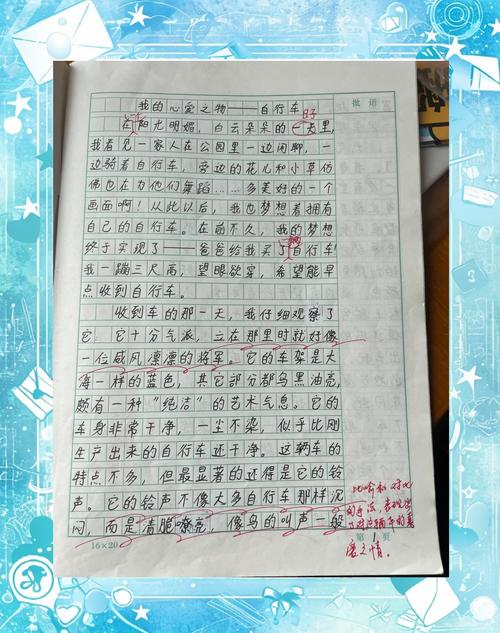 批语
我的心爱之物——自行车
日子
在阳光明媚，白云朵朵的一天里，
我看见一家人在公园里一边闲聊，一
边骑着自行车，旁边的花儿和小草仿
佛也在为他们舞蹈……多美好的一个
画面啊！从此以后，我也梦想着拥有
自己的自行车。在前不久，我的梦想
终于实现了——爸爸给我买了自行车！
我一蹦三尺高，望眼欲穿，希望能早
点收到自行车。
收到车的那一天，我仔细观察了
它。它十分气派，立在那里时就好像
一位威风凛凛的将军。它的车架是大
海一样的蓝色，其它部分都乌黑油亮，
颇有一种“纯洁”的艺术气息。它的
车身非常干净，一尘不染，似乎比刚
生产出来的自行车还干净。这辆车的
特点不多，但最显著的还得是它的铃
声。它的铃声不像大多自行车那样沉
闷，而是清脆嘹亮，像鸟的叫声一般
比喻和对比
的手法，表现出
了对这辆车的喜
爱之情。
16×20
第1页